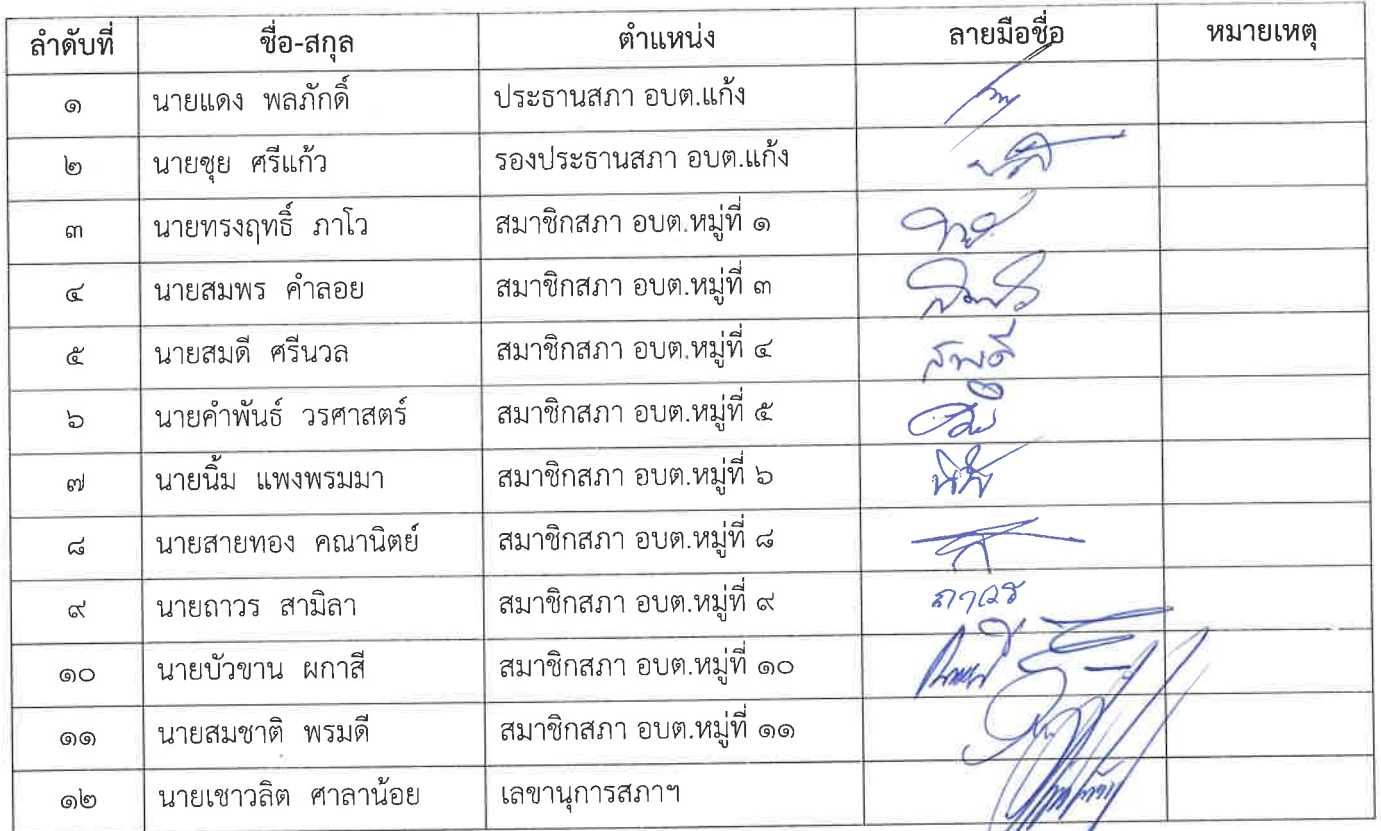 ลำดับที่ ชื่อ-สกุล ตำแหน่ง ลายมือชื่อ หมายเหตุ
๑ นายแดง พลภักดิ์ ประธานสภา อบต.แก้ง
๒ นายชุย ศรีแก้ว รองประธานสภา อบต.แก้ง
๓ นายทรงฤทธิ์ ภาโว สมาชิกสภา อบต.หมู่ที่ ๑
๔ นายสมพร คำลอย สมาชิกสภา อบต.หมู่ที่ ๓
๕ นายสมดี ศรีนวล สมาชิกสภา อบต.หมู่ที่ ๔ สมดี
๖ นายคำพันธ์ วรศาสตร์ สมาชิกสภา อบต.หมู่ที่ ๕
๗ นายนิ้ม แพงพรมมา สมาชิกสภา อบต.หมู่ที่ ๖
๘ นายสายทอง คณานิตย์ สมาชิกสภา อบต.หมู่ที่ ๘
๙ นายถาวร สามิลา สมาชิกสภา อบต.หมู่ที่ ๙ ถาวร
๑๐ นายบัวขาน ผกาสี สมาชิกสภา อบต.หมู่ที่ ๑๐
๑๑ นายสมชาติ พรมดี สมาชิกสภา อบต.หมู่ที่ ๑๑
๑๒ นายเชาวลิต ศาลาน้อย เลขานุการสภาฯ